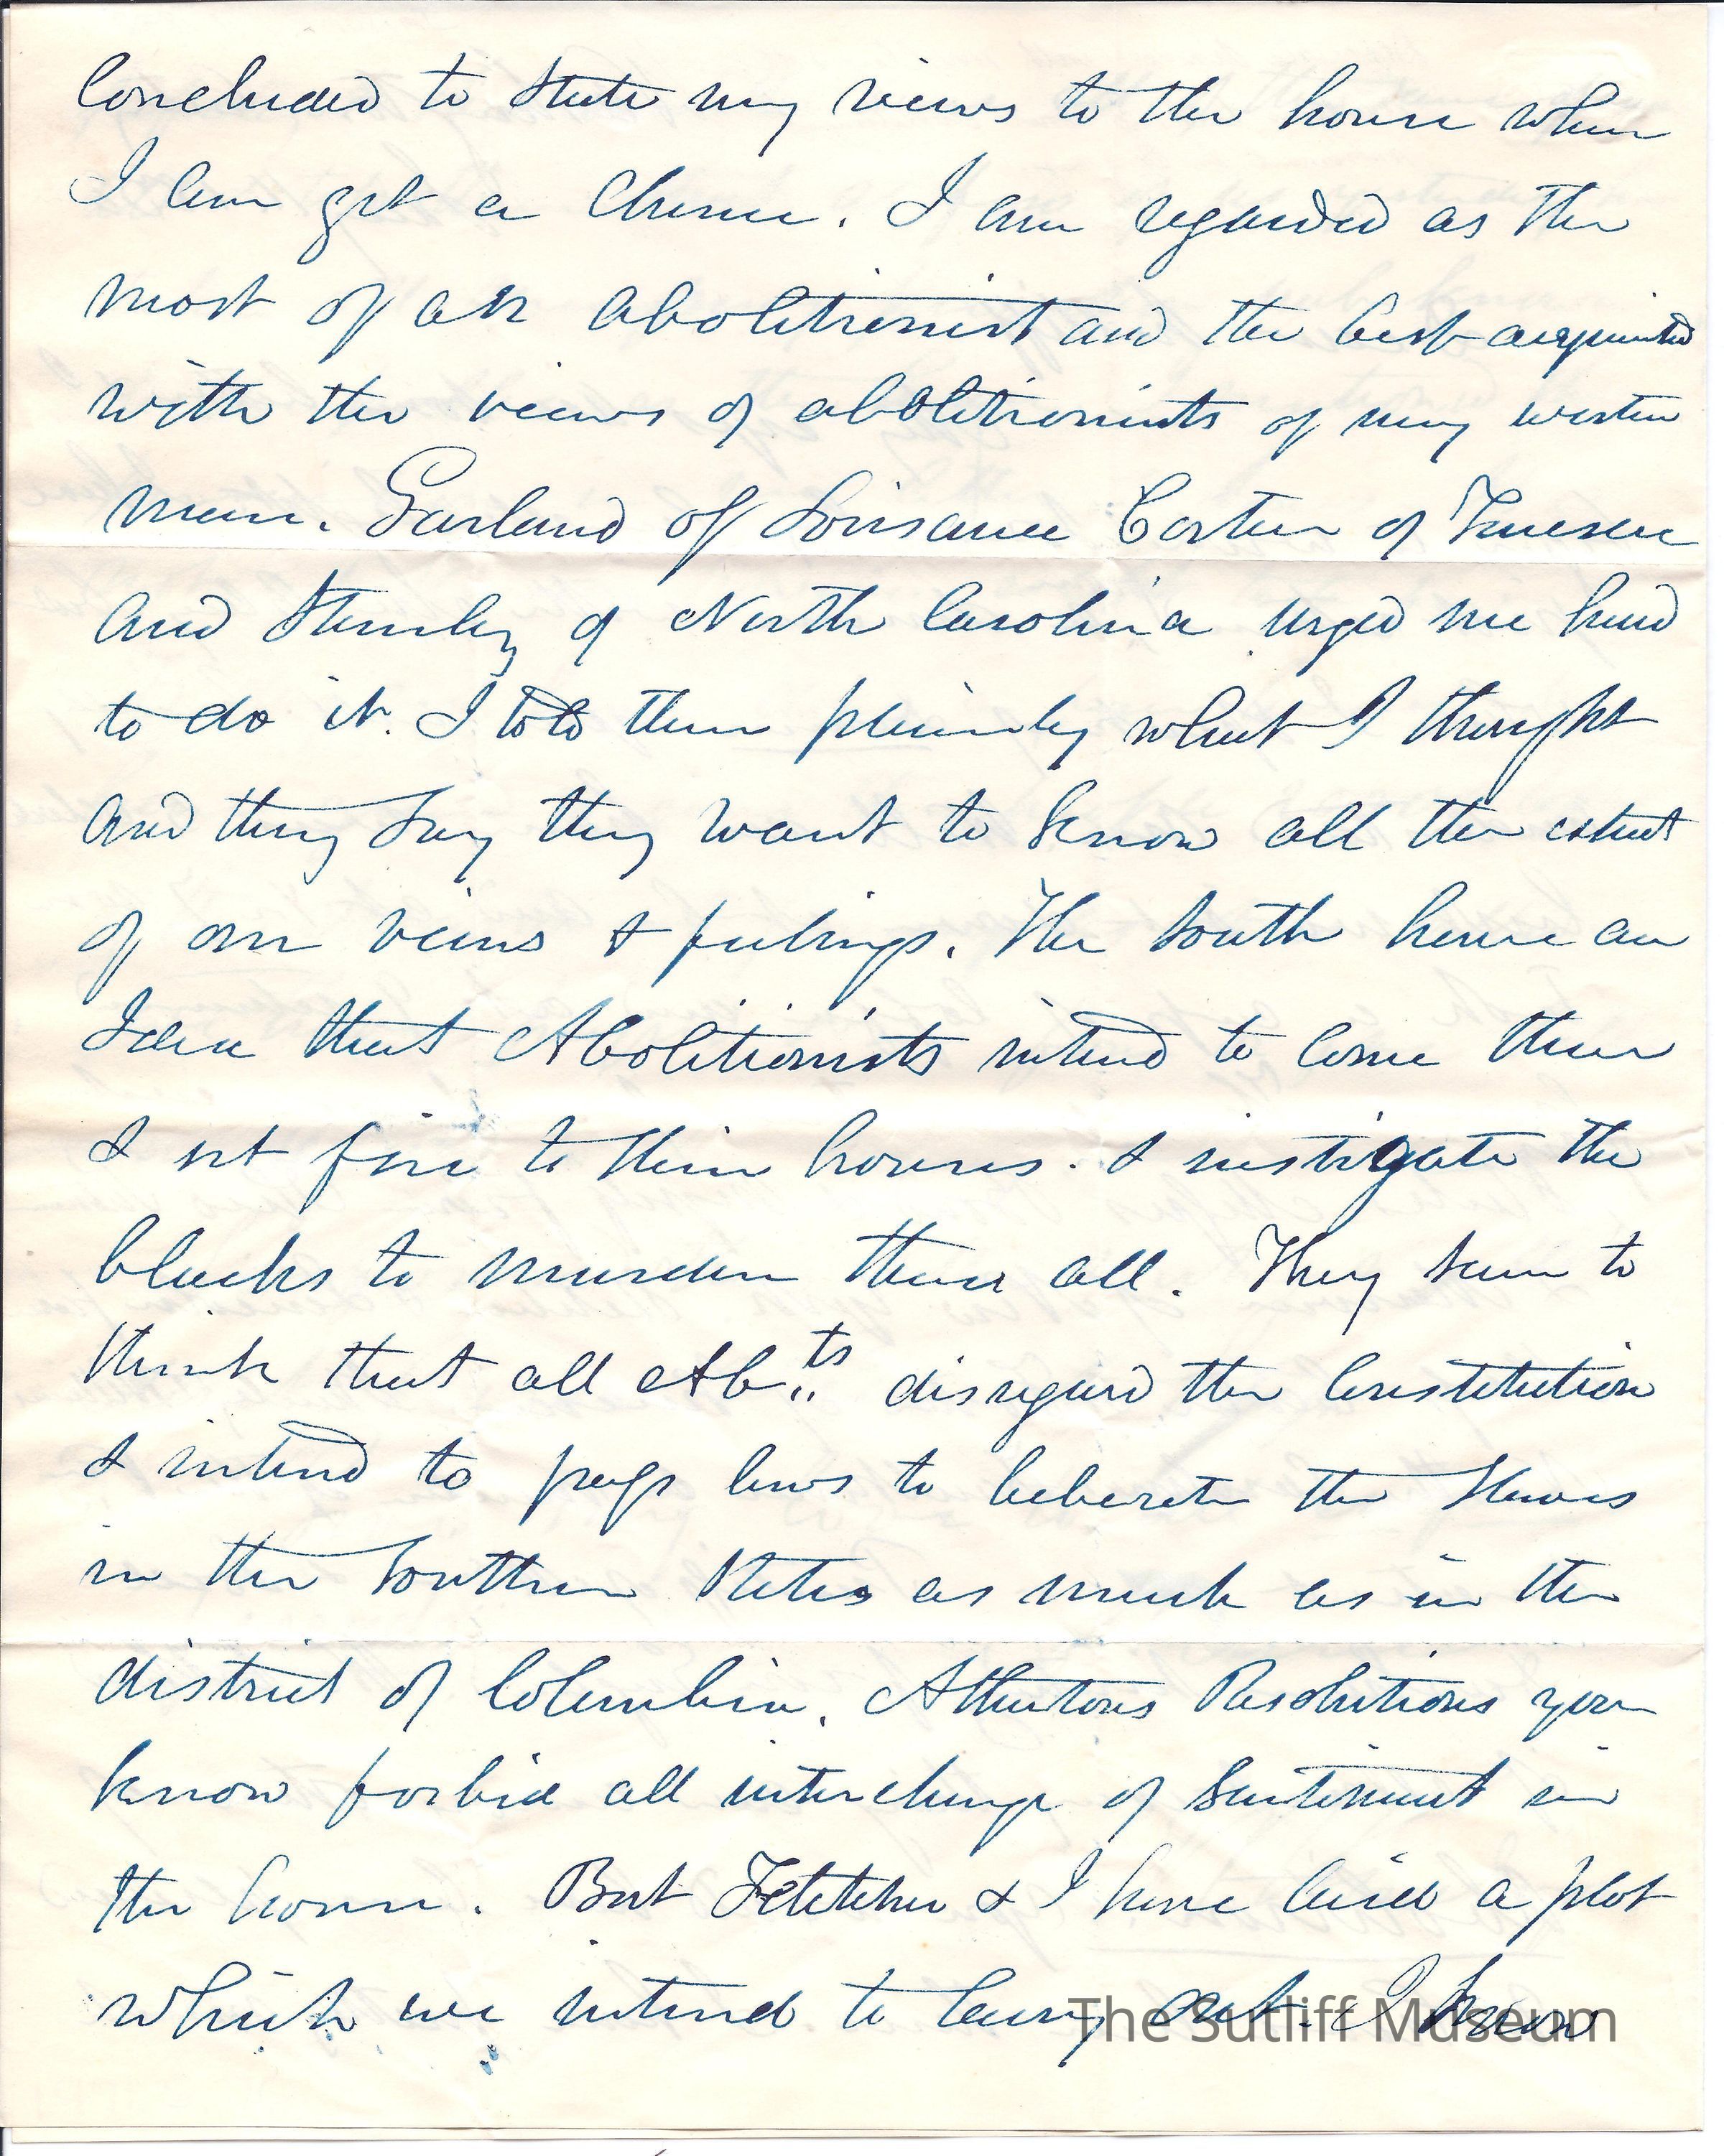 Concluded to state my views to the house when
I can get a chance. I am regarded as the
most of an abolitionist and the best acquainted
with the views of abolitionists of any western
man. Garland of Louisiana Carter of
and Stanley of North Carolina urged me hard
to do it. I told them plainly what I thought
and they say they want to know all the extent
of our views & feelings. The South have an
Idea that Abolitionists intend to come there
& set fire to their houses. & instigate the
blacks to murder them all. They seem to
think that all Ab..ts disregard the Constitution
& intend to pass laws to leberate the slaves
in the Southern States as much as in the
district of Columbia. Athertons Resolutions you
know forbid all interchange of sentiment in
the house. But Fletcher & I have laid a plot
which we intend to carry out. I know
The Sutliff Museum